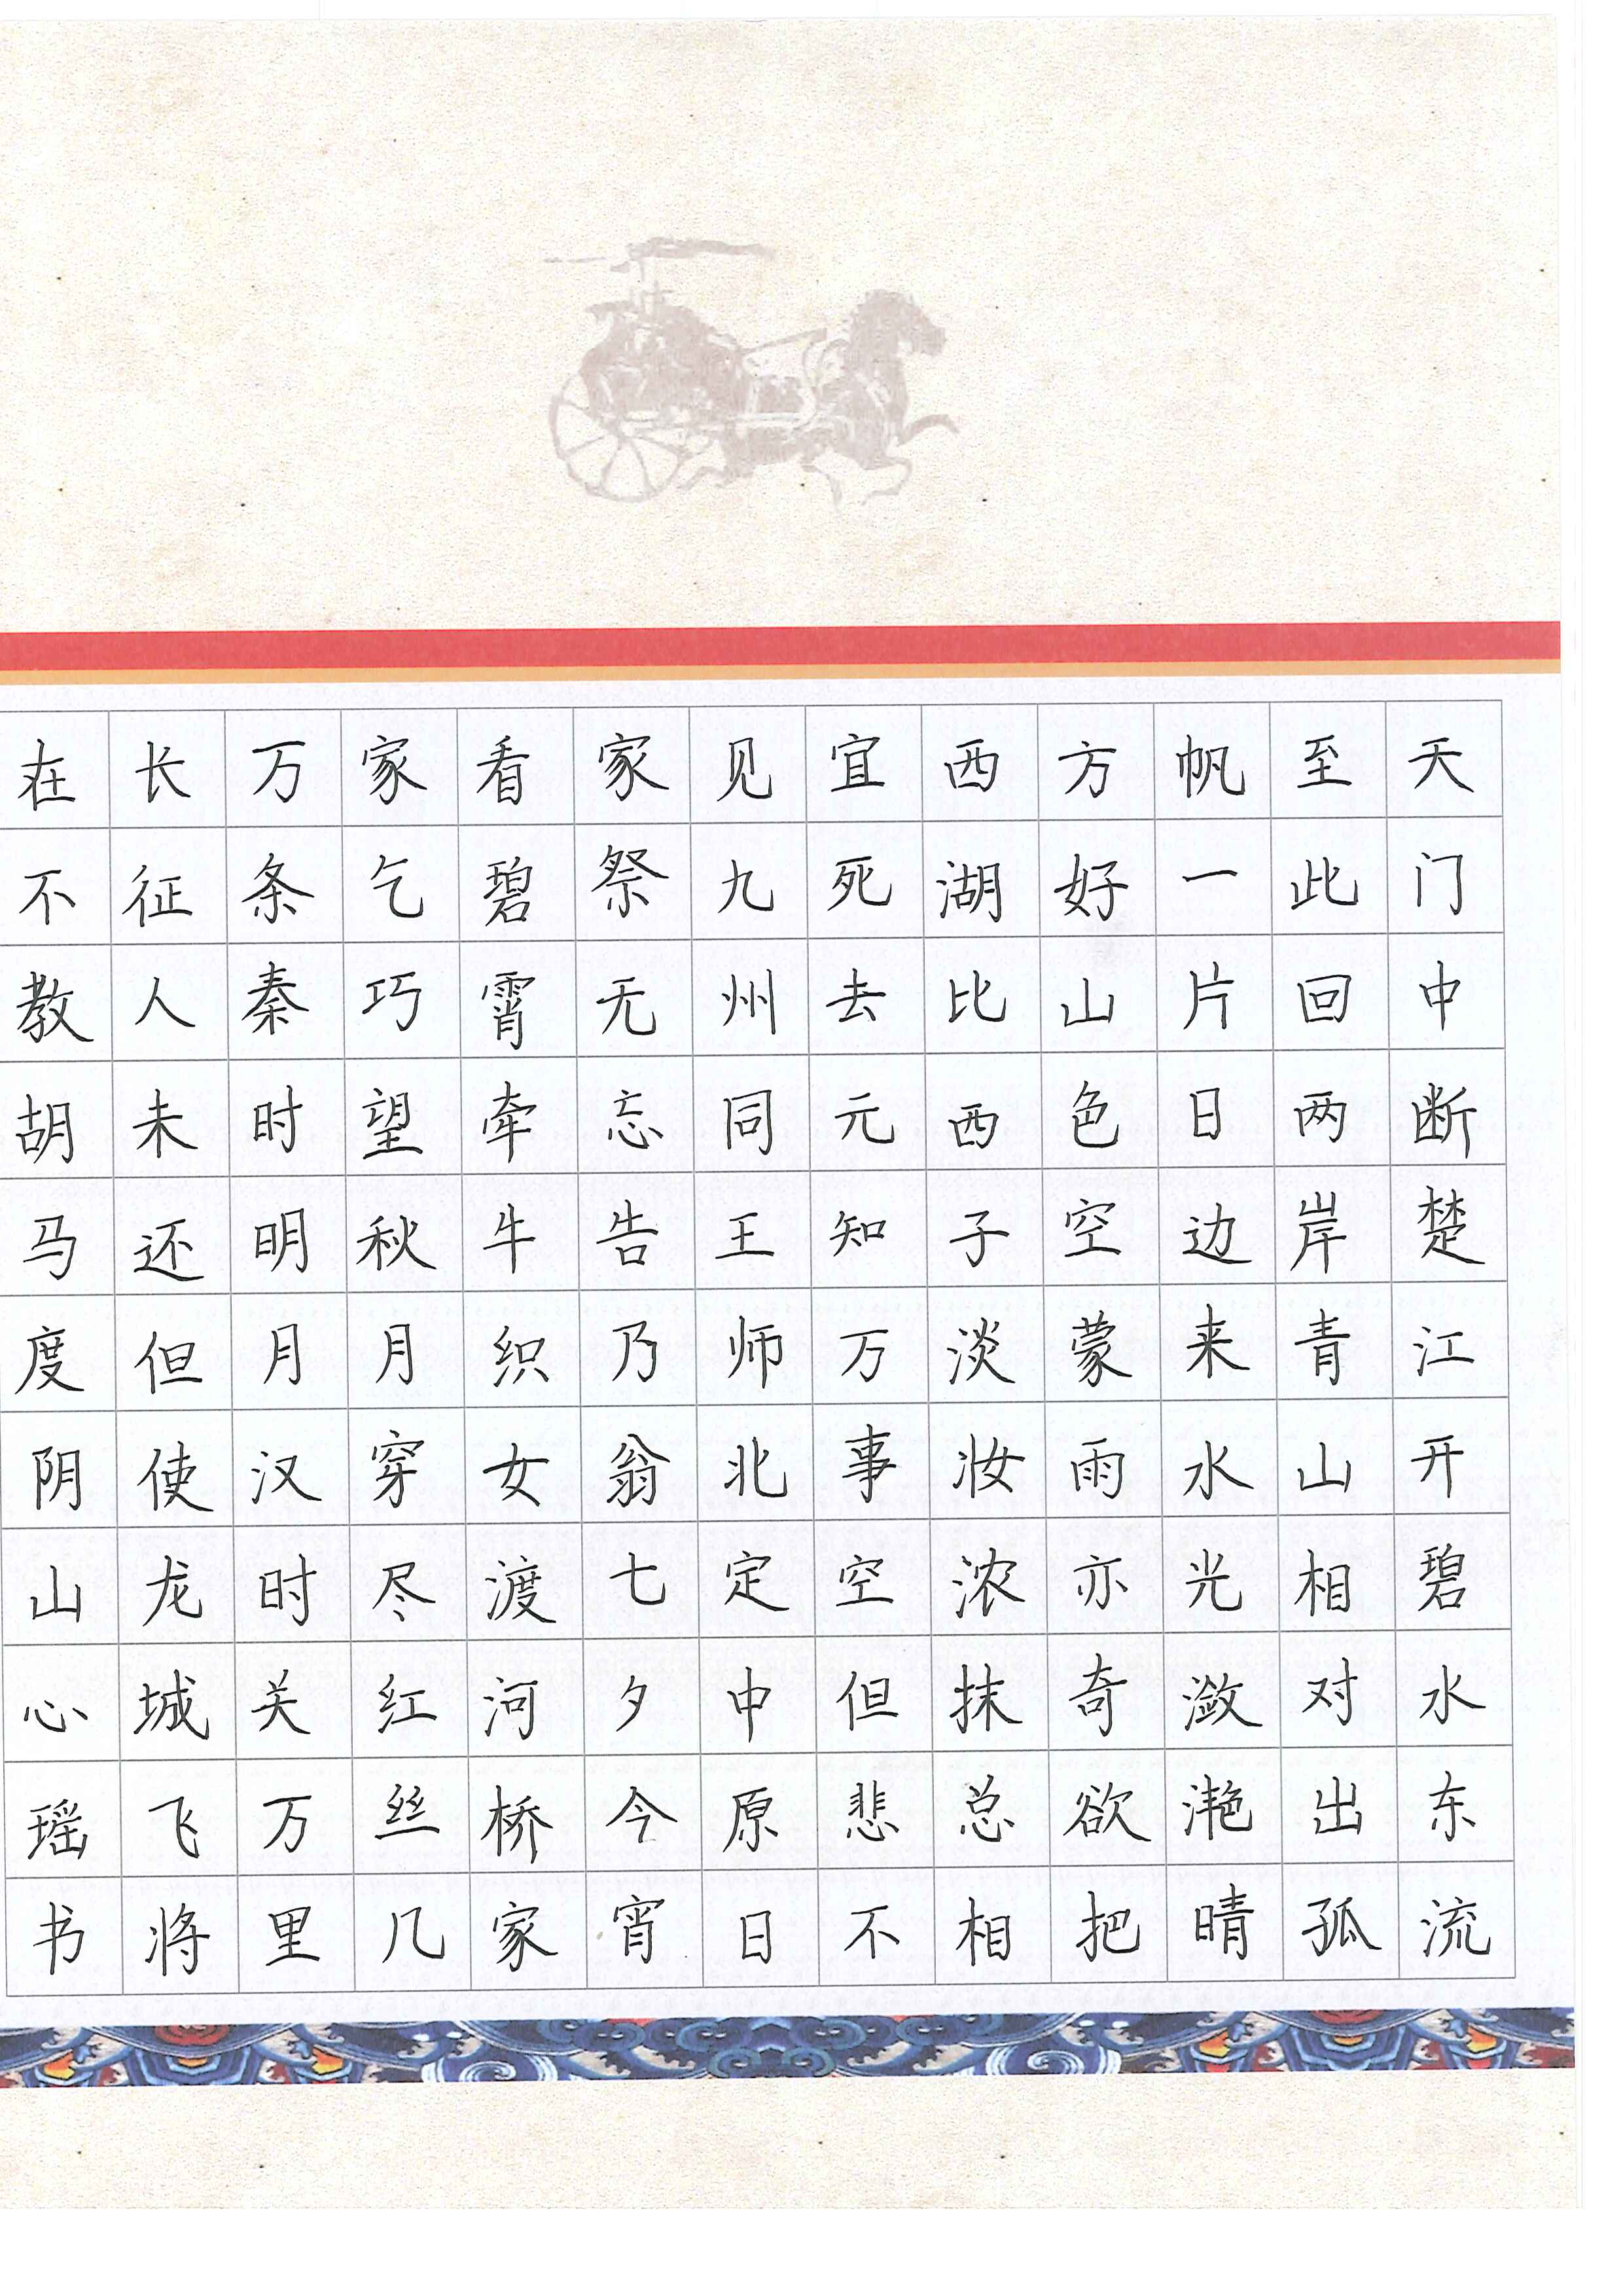 天门中断楚江开碧水东流
至此回两岸青山相对出孤
帆一片日边来水光潋滟晴
方好山色空蒙雨亦奇欲把
西湖比西子淡妆浓抹总相
宜死去元知万事空但悲不
见九州同王师北定中原日
家祭无忘告乃翁七夕今宵
看碧霄牵牛织女渡河桥家
家乞巧望秋月穿尽红丝几
万条秦时明月汉时关万里
长征人未还但使龙城飞将
在不教胡马度阴山心瑶书